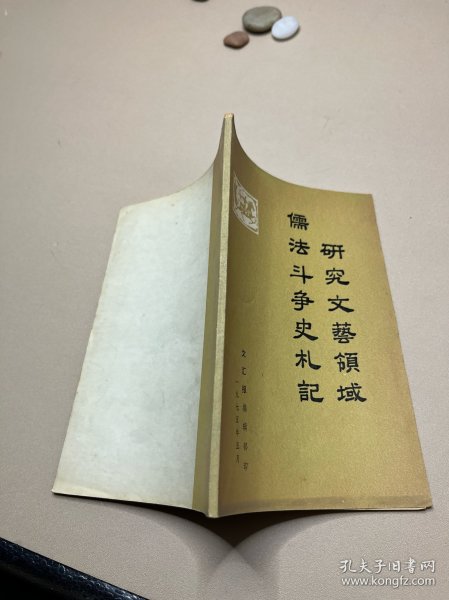 研究文藝領域
儒法斗争史札記
文汇报编辑部印
一九七五年五月
孔夫子旧书网
www.kongfz.com